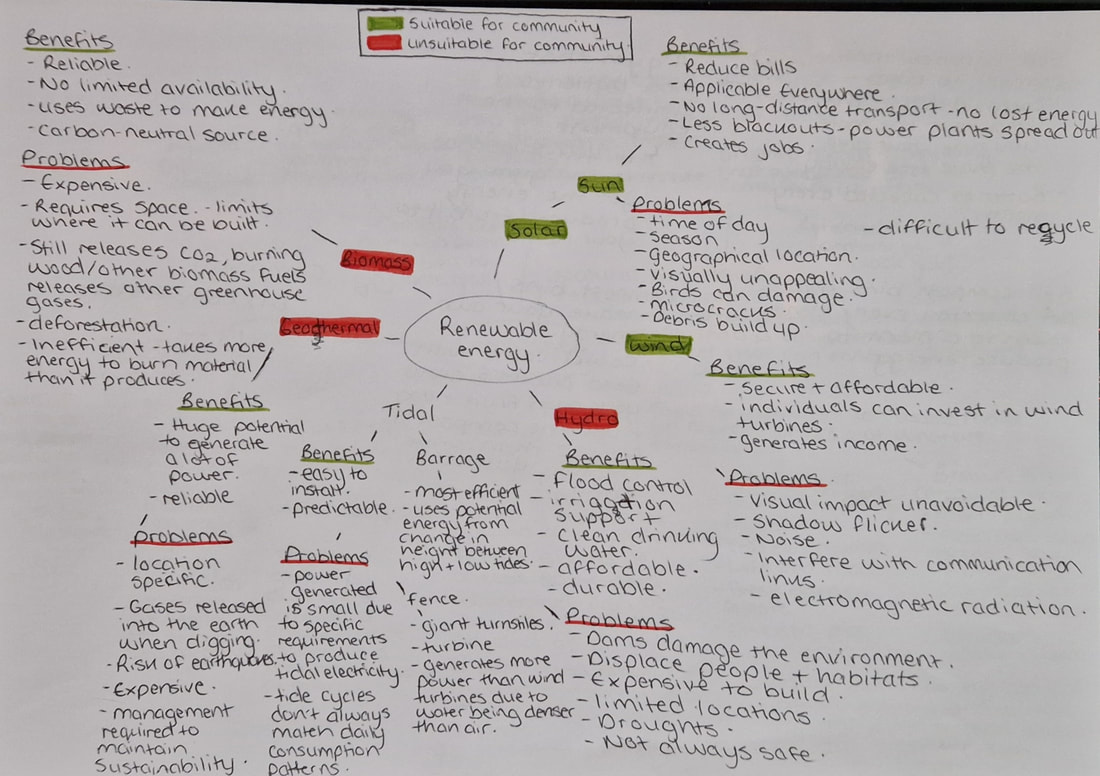 Suitable for community
unsuitable for community.
Benefits
- Reliable.
- No limited availability.
- uses waste to make energy.
- carbon-neutral source.
Problems
- Expensive.
- Requires space. - limits
where it can be built.
- Still releases CO2, burning
wood/other biomass fuels
releases other greenhouse
gases.
- deforestation.
- Inefficient - takes more
energy to burn material
than it produces.
Biomass
Geothermal
Benefits
- Huge potential
to generate
a lot of
power.
- reliable
Problems
- location
specific.
- Gases released
into the earth
when digging.
- Risk of earthquakes.
- Expensive.
- management
required to
maintain
sustainability.
Renewable
energy.
Solar
Sun
Benefits
- Reduce bills
- Applicable Everywhere.
- No long-distance transport - no lost energy
- Less blackouts - power plants spread out
- Creates jobs.
Problems
- time of day
- season
- geographical location.
- visually unappealing.
- Birds can damage.
- microcracks.
- Debris build up.
- difficult to recycle
Wind
Benefits
- secure + affordable.
- individuals can invest in wind
turbines.
- generates income.
Problems.
- visual impact unavoidable.
- Shadow flicker.
- Noise.
- Interfere with communication
links.
- electromagnetic radiation.
Tidal
Benefits
- easy to
install.
- predictable.
Problems
- power
generated
is small due
to specific
requirements
to produce
tidal electricity.
- tide cycles
don't always
match daily
consumption
patterns.
Barrage
- most efficient
- uses potential
energy from
change in
height between
high + low tides.
fence.
- giant turnstiles.
- turbine
- generates more
power than wind
turbines due to
water being denser
than air.
Hydro
Benefits
- Flood control
- irrigation
support
- clean drinking
water.
- affordable.
- durable.
Problems
- Dams damage the environment.
- Displace people + habitats.
- Expensive to build.
- limited locations.
- Droughts.
- Not always safe.